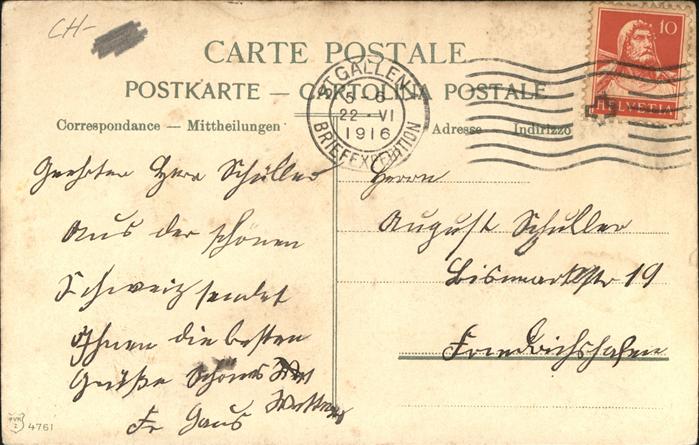 CH-
CARTE POSTALE
POSTKARTE — CARTOLINA POSTALE
Correspondance — Mittheilungen
Adresse — Indirizzo
ST. GALLEN
5-6
22·VI
1916
BRIEFEXPEDITION
10
HELVETIA
Geehrter Herr Schüller
Aus der schönen
Schweiz sendet
Ihnen die besten
Grüße Schönes
Fr Gaus
Herrn
August Schüller
Bismarkstr 19
Friedrichshafen
4761